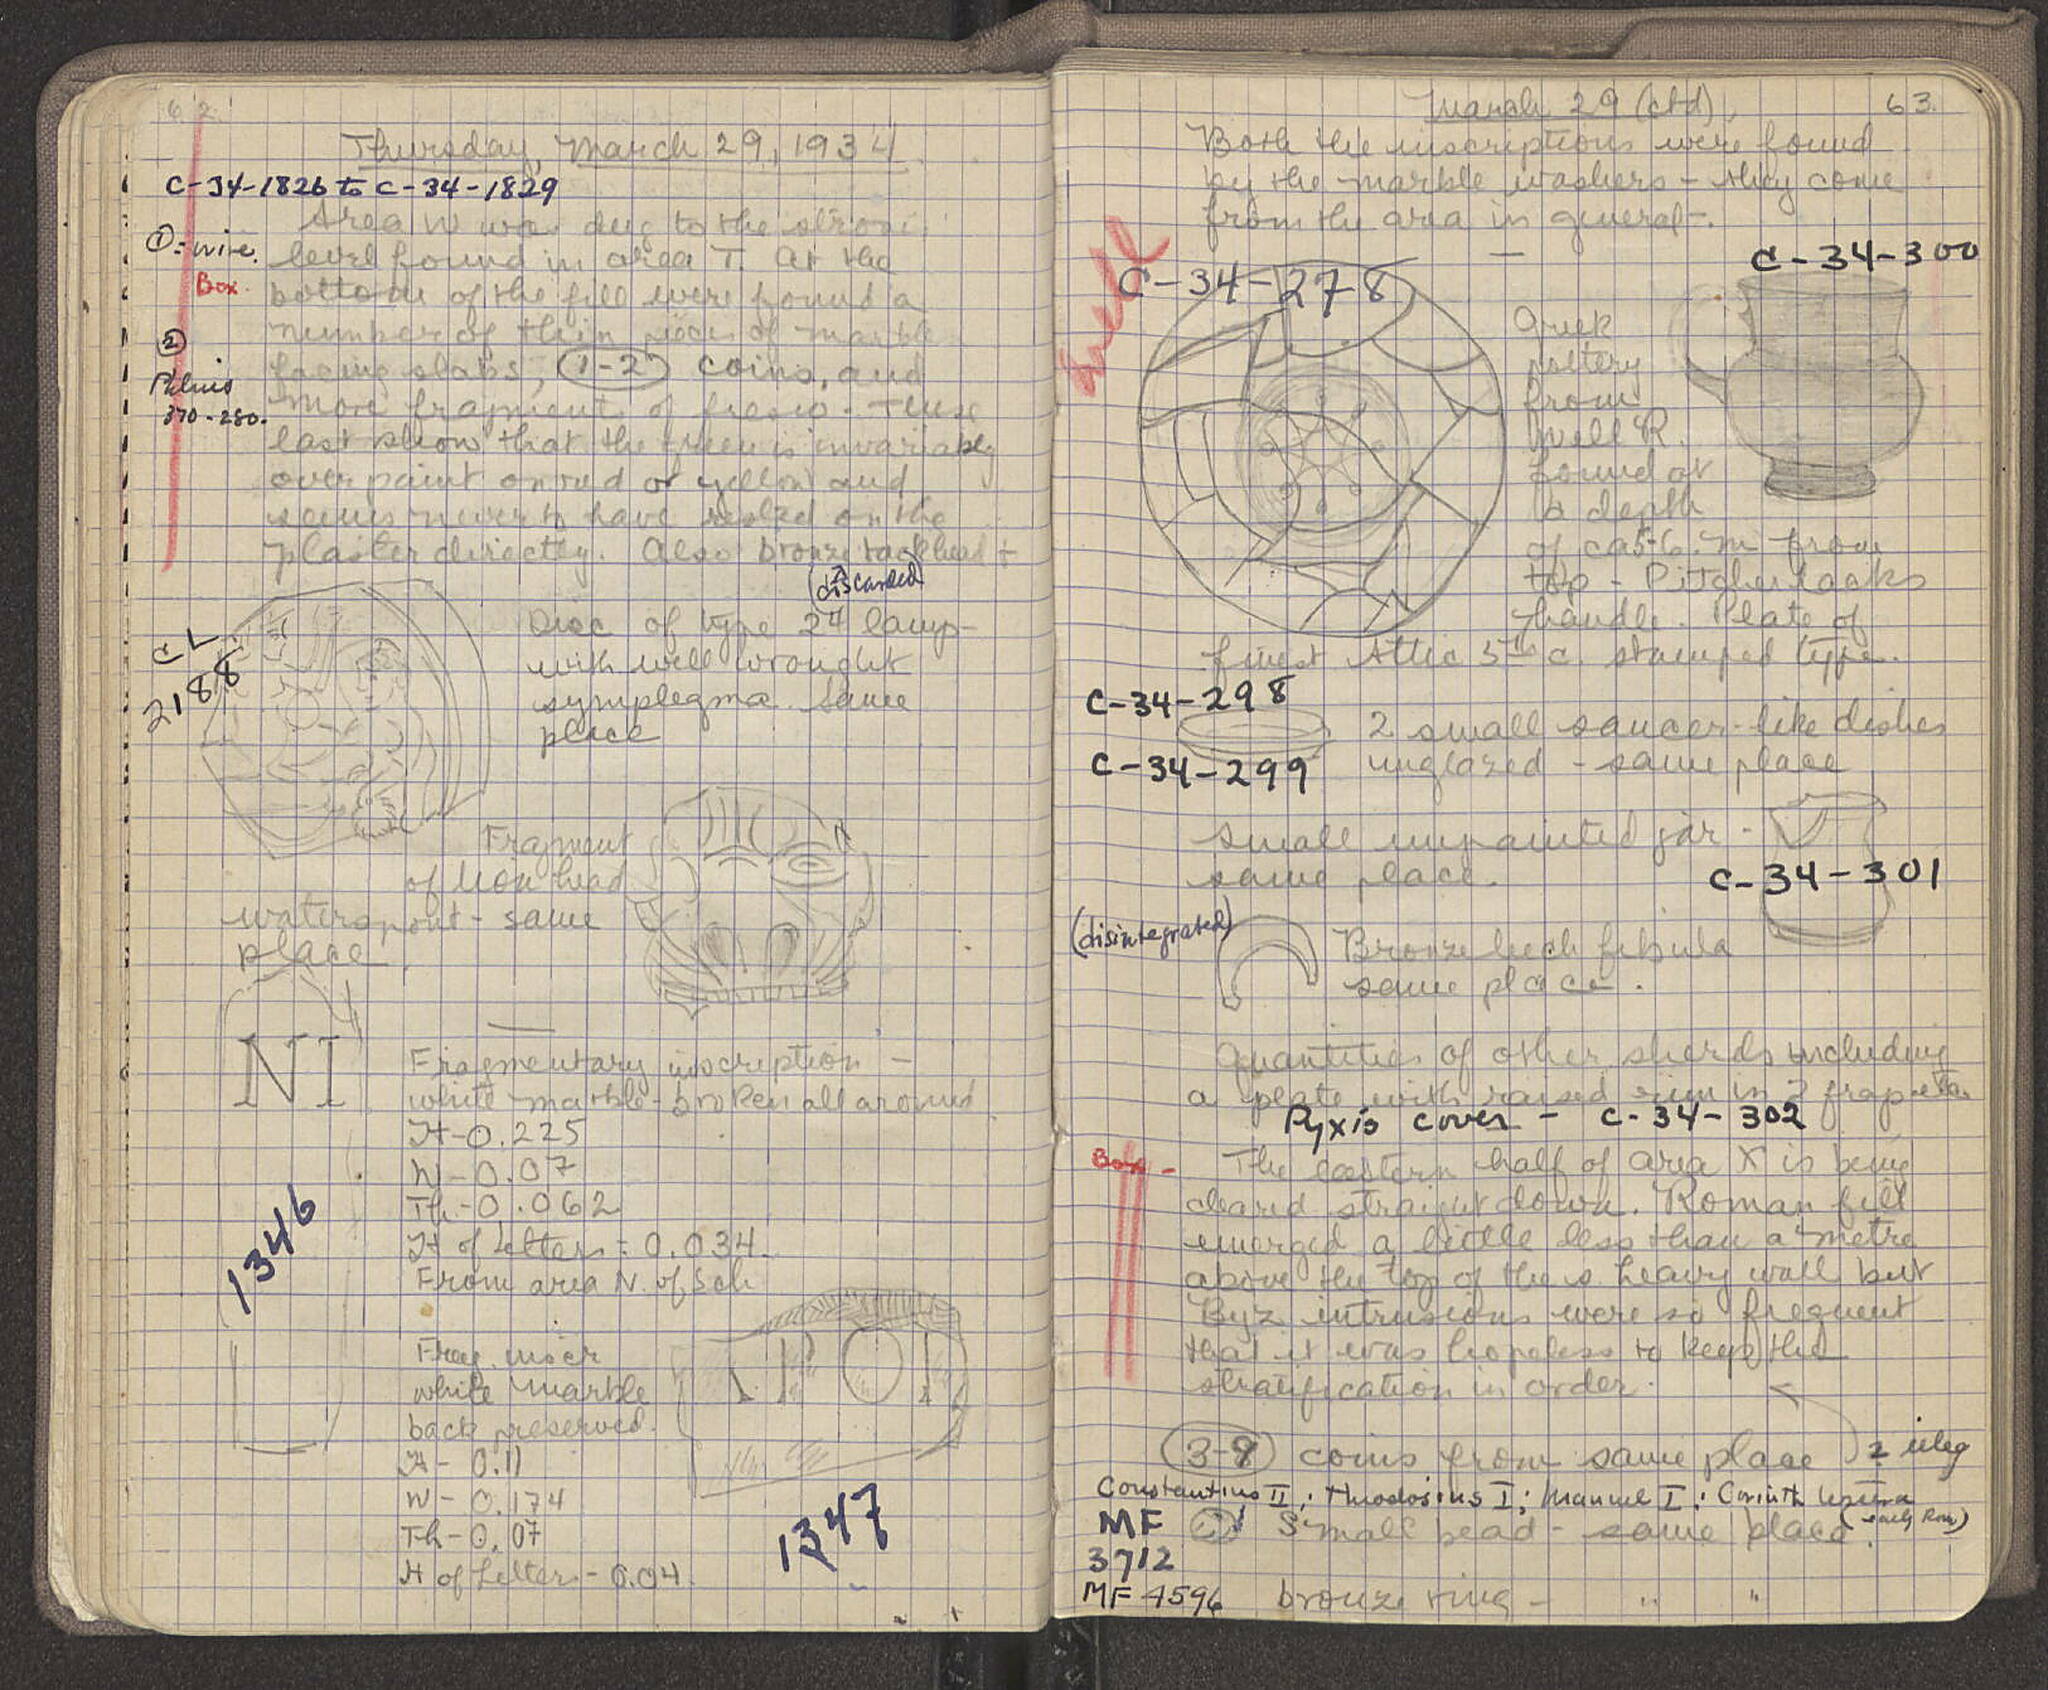 62
Thursday, March 29, 1934
C-34-1826 to C-34-1829
Area W was dug to the stroses
① - wire. level found in area T. At the
Box. bottom of the fill were found a
number of thin pieces of marble
② facing slabs, (1-2) coins, and
Pelnis
370-280.
more fragments of fresco - These
last show that the green is invariably
overpaint on red or yellow and
seems never to have rested on the
plaster directly. Also bronze tack head +
(discarded)
CL
2188
Disc of type 27 lamp -
with well wrought
symplegma. Same
place
Fragment
of lion head
waterspout - same
place
NI
Fragmentary inscription -
white marble - broken all around
H - 0.225
W - 0.07
Th - 0.062
H of letters = 0.034
From area N. of Sch
1346
Frag. inscr
white marble
back preserved.
H - 0.11
W - 0.174
Th - 0.07
H of letters - 0.04.
1347
March 29 (ctd), 63.
Both the inscriptions were found
by the marble washers - they come
from the area in general.
well
C-34-278
C-34-300
Greek
pottery
from
well R.
found at
a depth
of ca 5-6. m from
top - Pitcher lacks
handle. Plate of
finest Attic 5th c. stamped type.
C-34-298
2 small saucer-like dishes
C-34-299 unglazed - same place
small unpainted jar -
same place.
C-34-301
(disintegrated)
Bronze leech fibula
same place.
Quantities of other sherds including
a plate with raised rim in 2 frag
Pyxis cover - C-34-302
Box - The eastern half of area X is being
cleared straight down. Roman fill
emerged a little less than a metre
above the top of the s. heavy wall but
Byz. intrusions were so frequent
that it was hopeless to keep the
stratification in order.
(3-8) coins from same place 2 illeg
Constantius II; Theodosius I; Manuel I; Corinth
(early Rom)
MF Small bead - same place.
3712
MF 4596 bronze ring - " "